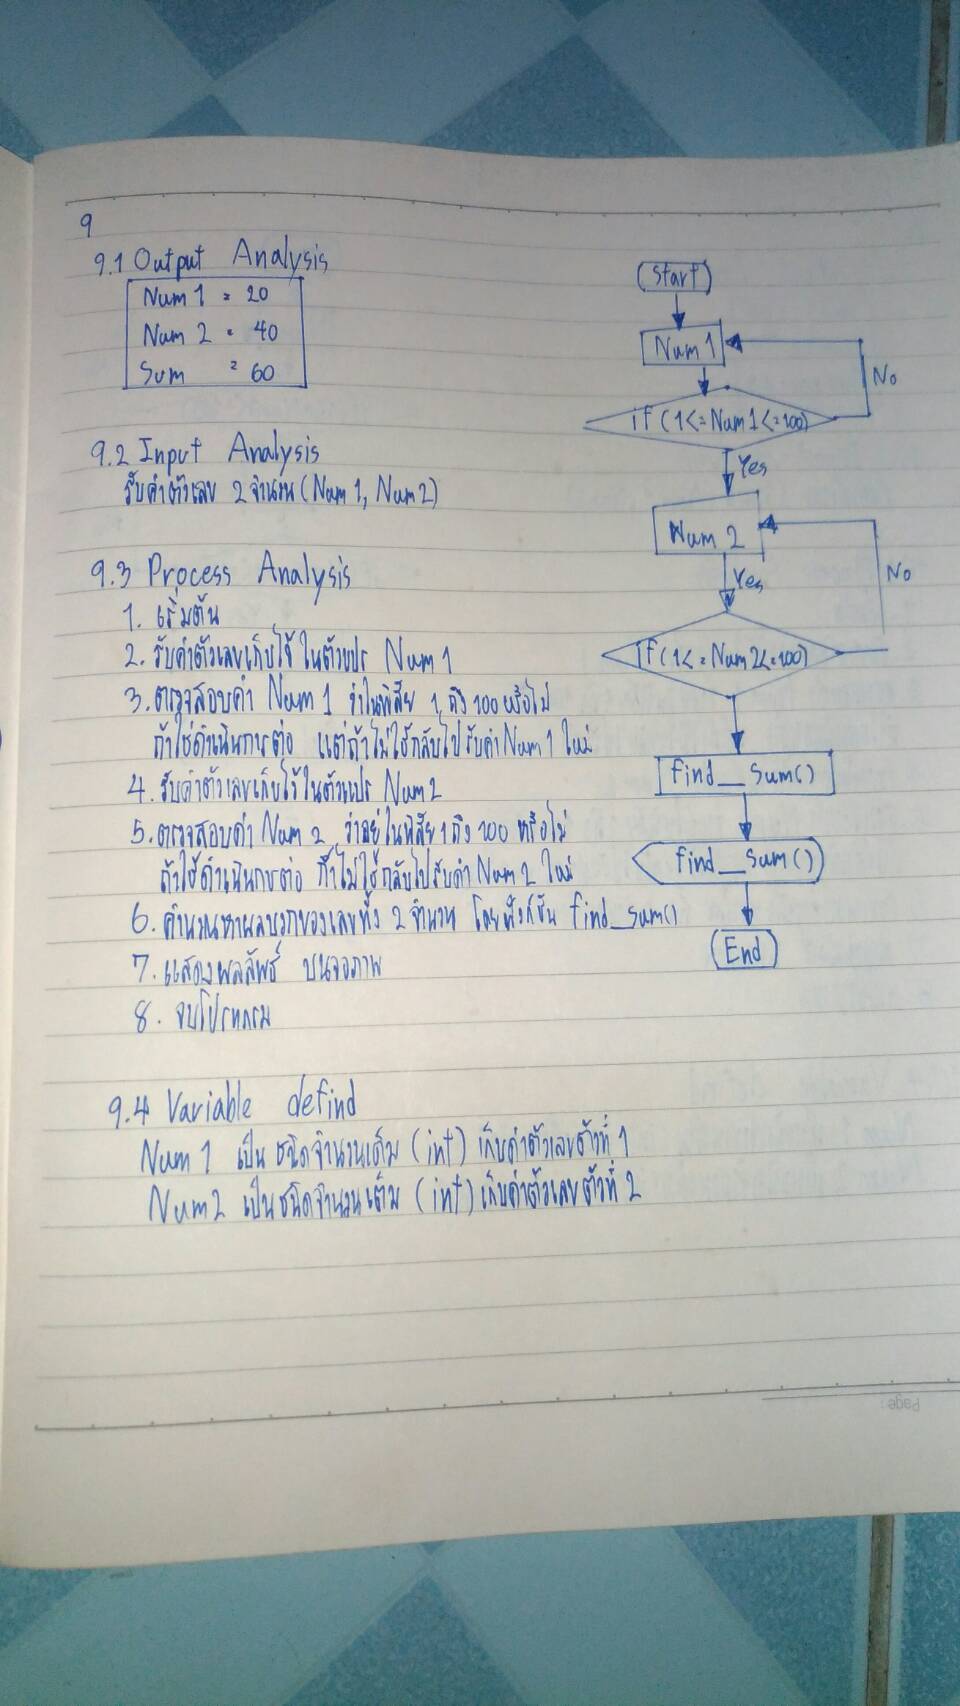 9
9.1 Output Analysis
Num 1 = 20
Num 2 = 40
Sum = 60
9.2 Input Analysis
รับค่าตัวเลข 2 จำนวน (Num 1, Num 2)
9.3 Process Analysis
1. เริ่มต้น
2. รับค่าตัวเลขเก็บไว้ในตัวแปร Num 1
3. ตรวจสอบค่า Num 1 ว่าในพิสัย 1 ถึง 100 หรือไม่
ถ้าใช่ดำเนินการต่อ แต่ถ้าไม่ใช่กลับไปรับค่า Num 1 ใหม่
4. รับค่าตัวเลขเก็บไว้ในตัวแปร Num 2
5. ตรวจสอบค่า Num 2 ว่าอยู่ในพิสัย 1 ถึง 100 หรือไม่
ถ้าใช่ดำเนินการต่อ ถ้าไม่ใช่กลับไปรับค่า Num 2 ใหม่
6. คำนวณหาผลบวกของเลขทั้ง 2 จำนวน โดยฟังก์ชัน find_sum()
7. แสดงผลลัพธ์ บนจอภาพ
8. จบโปรแกรม
9.4 Variable defind
Num 1 เป็นชนิดจำนวนเต็ม (int) เก็บค่าตัวเลขตัวที่ 1
Num 2 เป็นชนิดจำนวนเต็ม (int) เก็บค่าตัวเลขตัวที่ 2
Start
Num 1
No
if (1<=Num 1<=100)
Yes
Num 2
No
Yes
if (1<=Num2<=100)
find_sum()
find_sum()
End
Page: